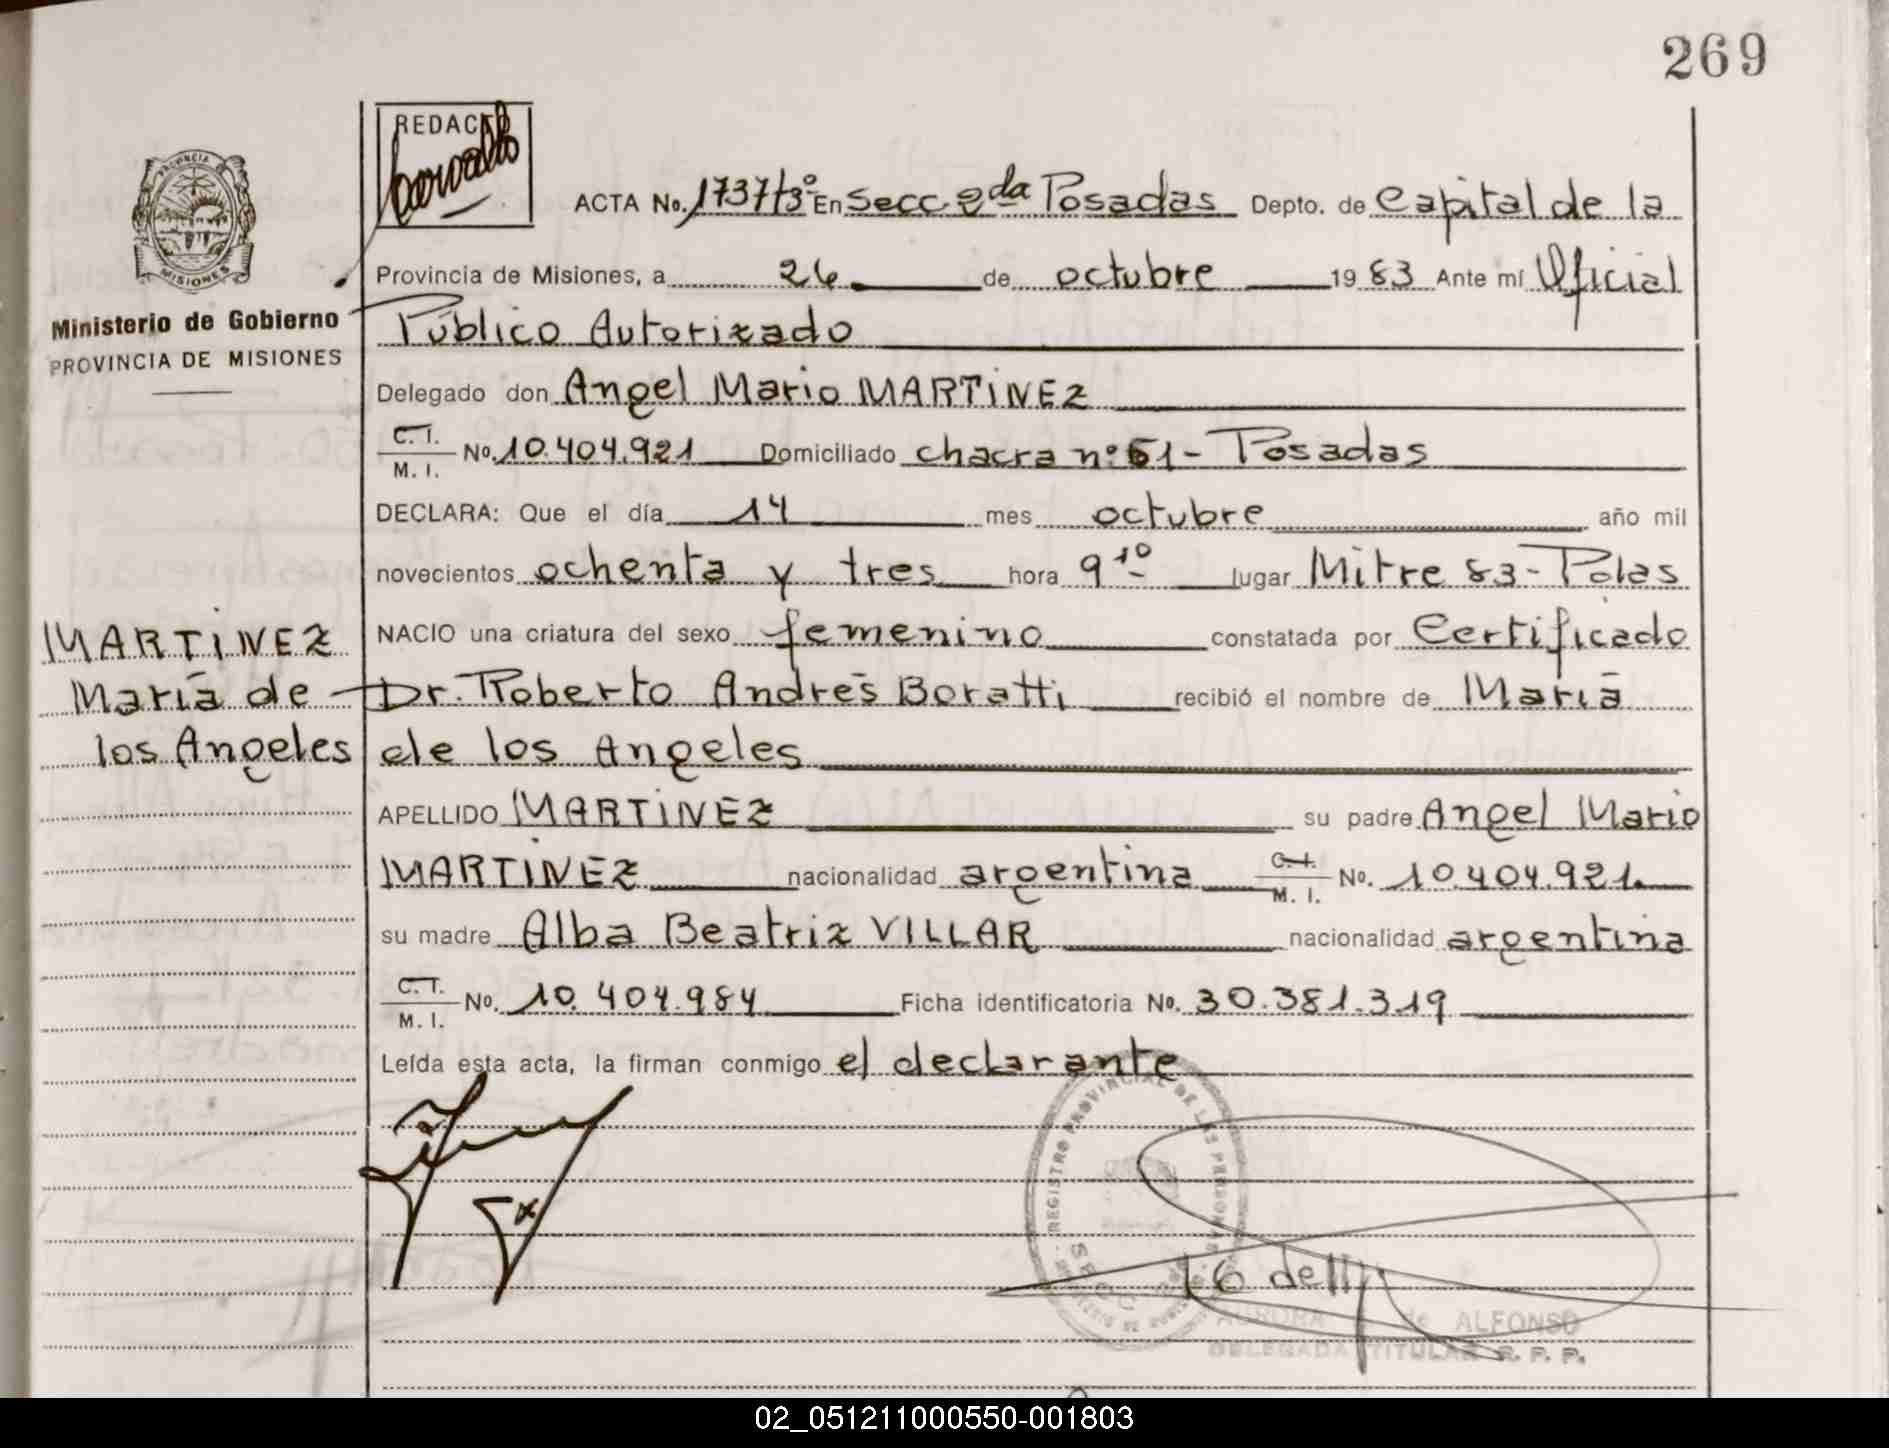 269
REDACTÓ
PROVINCIA
MISIONES
Ministerio de Gobierno
PROVINCIA DE MISIONES
ACTA No. 1737/3º En Secc. 2da Posadas Depto. de Capital de la
Provincia de Misiones, a 26 de octubre 1983 Ante mí Oficial
Público Autorizado
Delegado don Angel Mario MARTINEZ
C. I.
M. I. No. 10.404.921 Domiciliado chacra nº 61 - Posadas
DECLARA: Que el día 14 mes octubre año mil
novecientos ochenta y tres hora 9 10 lugar Mitre 83 - Pdas
NACIO una criatura del sexo femenino constatada por Certificado
Dr. Roberto Andrés Boratti recibió el nombre de María
de los Angeles
MARTINEZ
María de
los Angeles
APELLIDO MARTINEZ su padre Angel Mario
MARTINEZ nacionalidad argentina C. I.
M. I. No. 10.404.921.
su madre Alba Beatriz VILLAR nacionalidad argentina
C. I.
M. I. No. 10.404.984 Ficha identificatoria No. 30.381.319
Leída esta acta, la firman conmigo el declarante
REGISTRO PROVINCIAL DE LAS PERSONAS
SECC
AURORA de ALFONSO
DELEGADA TITULAR R. P. P.
02_051211000550-001803